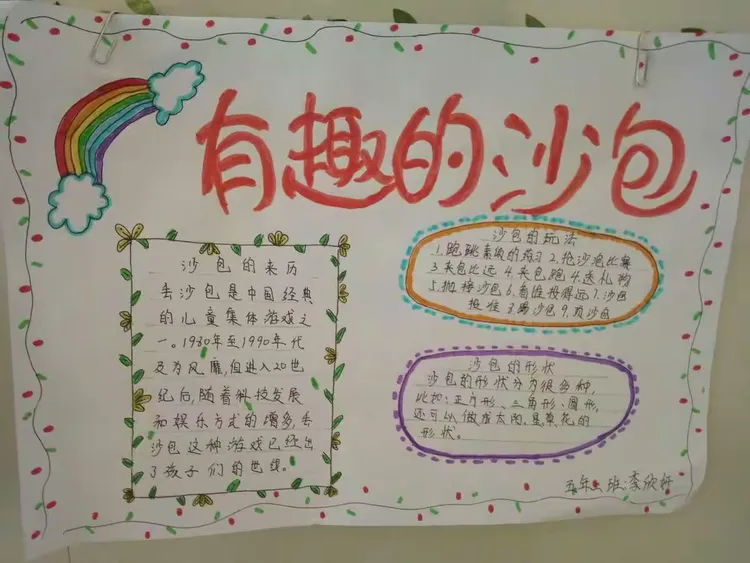 有趣的沙包
沙包的来历
丢沙包是中国经典
的儿童集体游戏之
一。1980年至1990年代
及为风靡,但进入20世
纪后,随着科技发展
和娱乐方式的增多,丢
沙包这种游戏已经出
了孩子们的世线。
沙包的玩法
1.跑跳素级的练习 2.抢沙泡比赛
3.夹包比远 4.夹包跑 4.送礼物
5.抛接沙包 6.看谁投得远 7.沙包
投准 8.踢沙包 9.顶沙包
沙包的形状
沙包的形状分为很多种,
比如:正方形、三角形、圆形,
还可以做成太阳、星、菜花的
形状。
五年 班:李欣